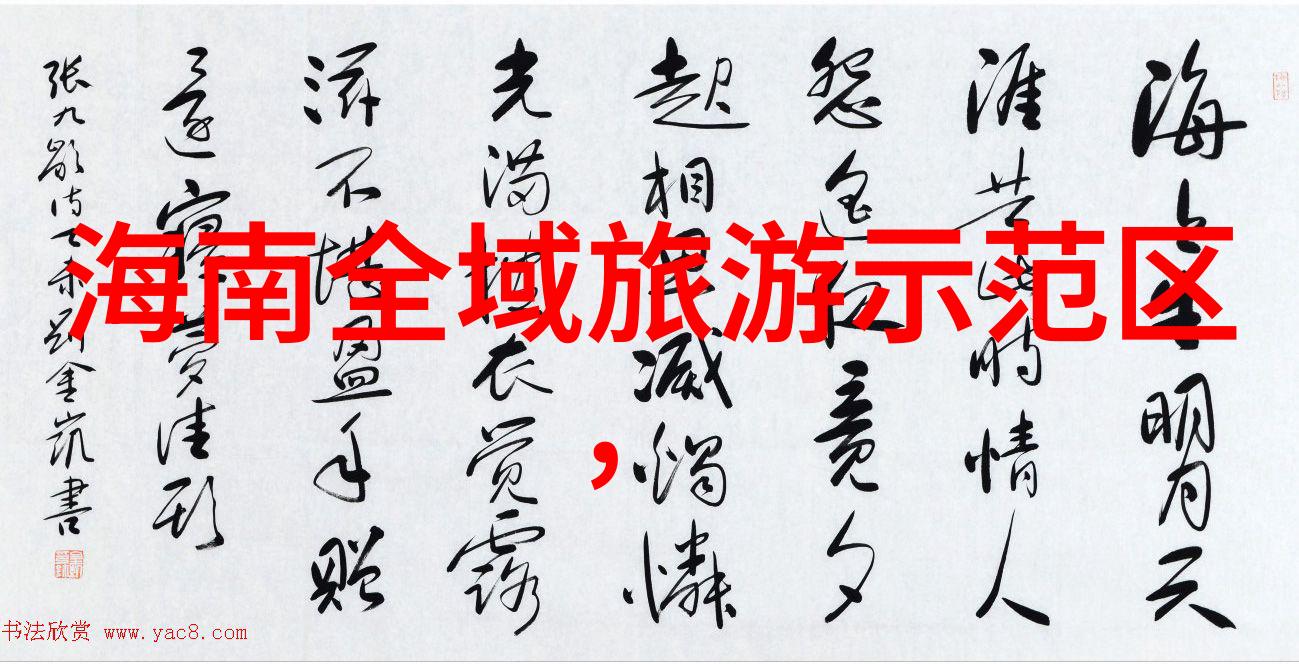 海上生明月天
涯共此時情人
怨遥夜竟夕
起相思滅燭憐
光满披衣觉露
滋不堪盈手贈
還寝梦佳期
张九齡诗乙未刘金凯書
海南全域旅游示范区
,
书法欣赏 www.yac8.com